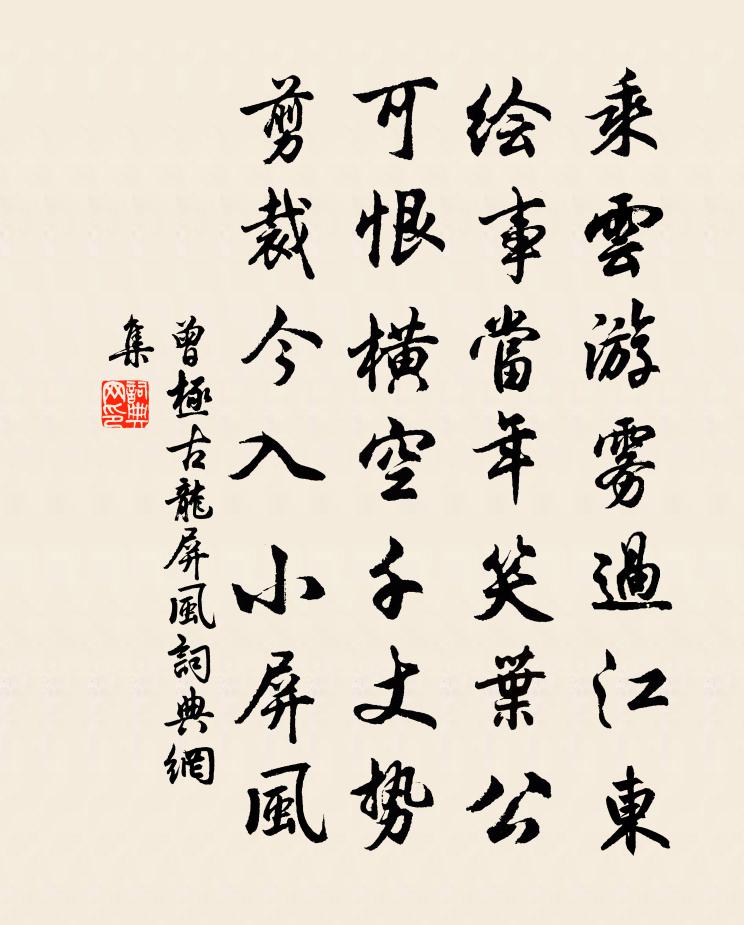 乘雲游霧過江東
绘事當年笑葉公
可恨橫空千丈势
剪裁今入小屏風
曾極古龍屏風詞典網
集
詞典
网印